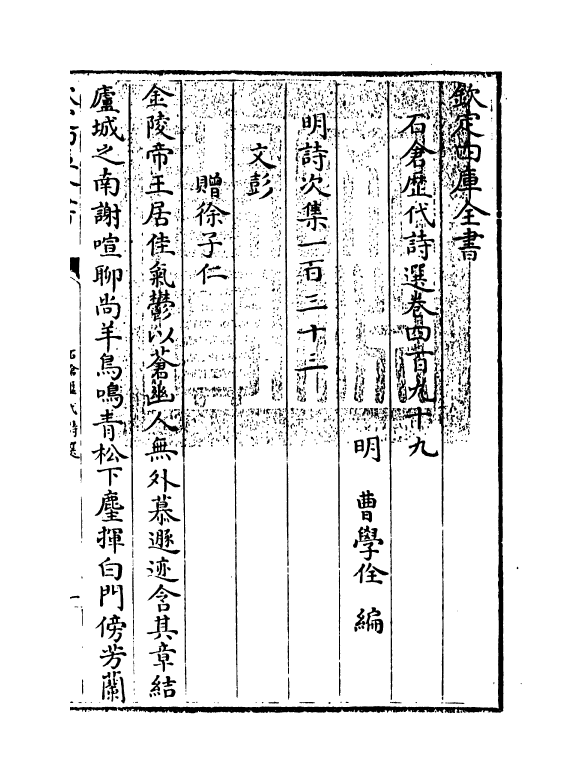 欽定四庫全書
石倉歷代詩選卷四百九十九
明 曹學佺 編
明詩次集一百三十三
文彭
贈徐子仁
金陵帝王居佳氣鬱以蒼幽人無外慕遯迹含其章結
廬城之南謝喧聊尚羊鳥鳴青松下麈揮白門傍芳蘭
石倉歷代詩選
一